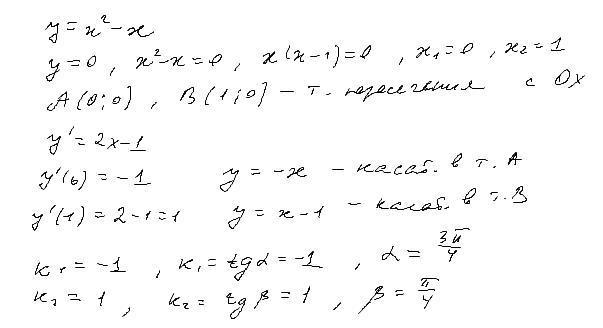 y = x² - x
y = 0 , x² - x = 0 , x(x-1) = 0 , x₁ = 0 , x₂ = 1
A(0;0) , B(1;0) - т. пересечения с Ox
y' = 2x - 1
y'(0) = -1 y = -x - касат. в т. A
y'(1) = 2-1 = 1 y = x-1 - касат. в т. B
k₁ = -1 , k₁ = tg α = -1 , α = 3π/4
k₂ = 1 , k₂ = tg β = 1 , β = π/4